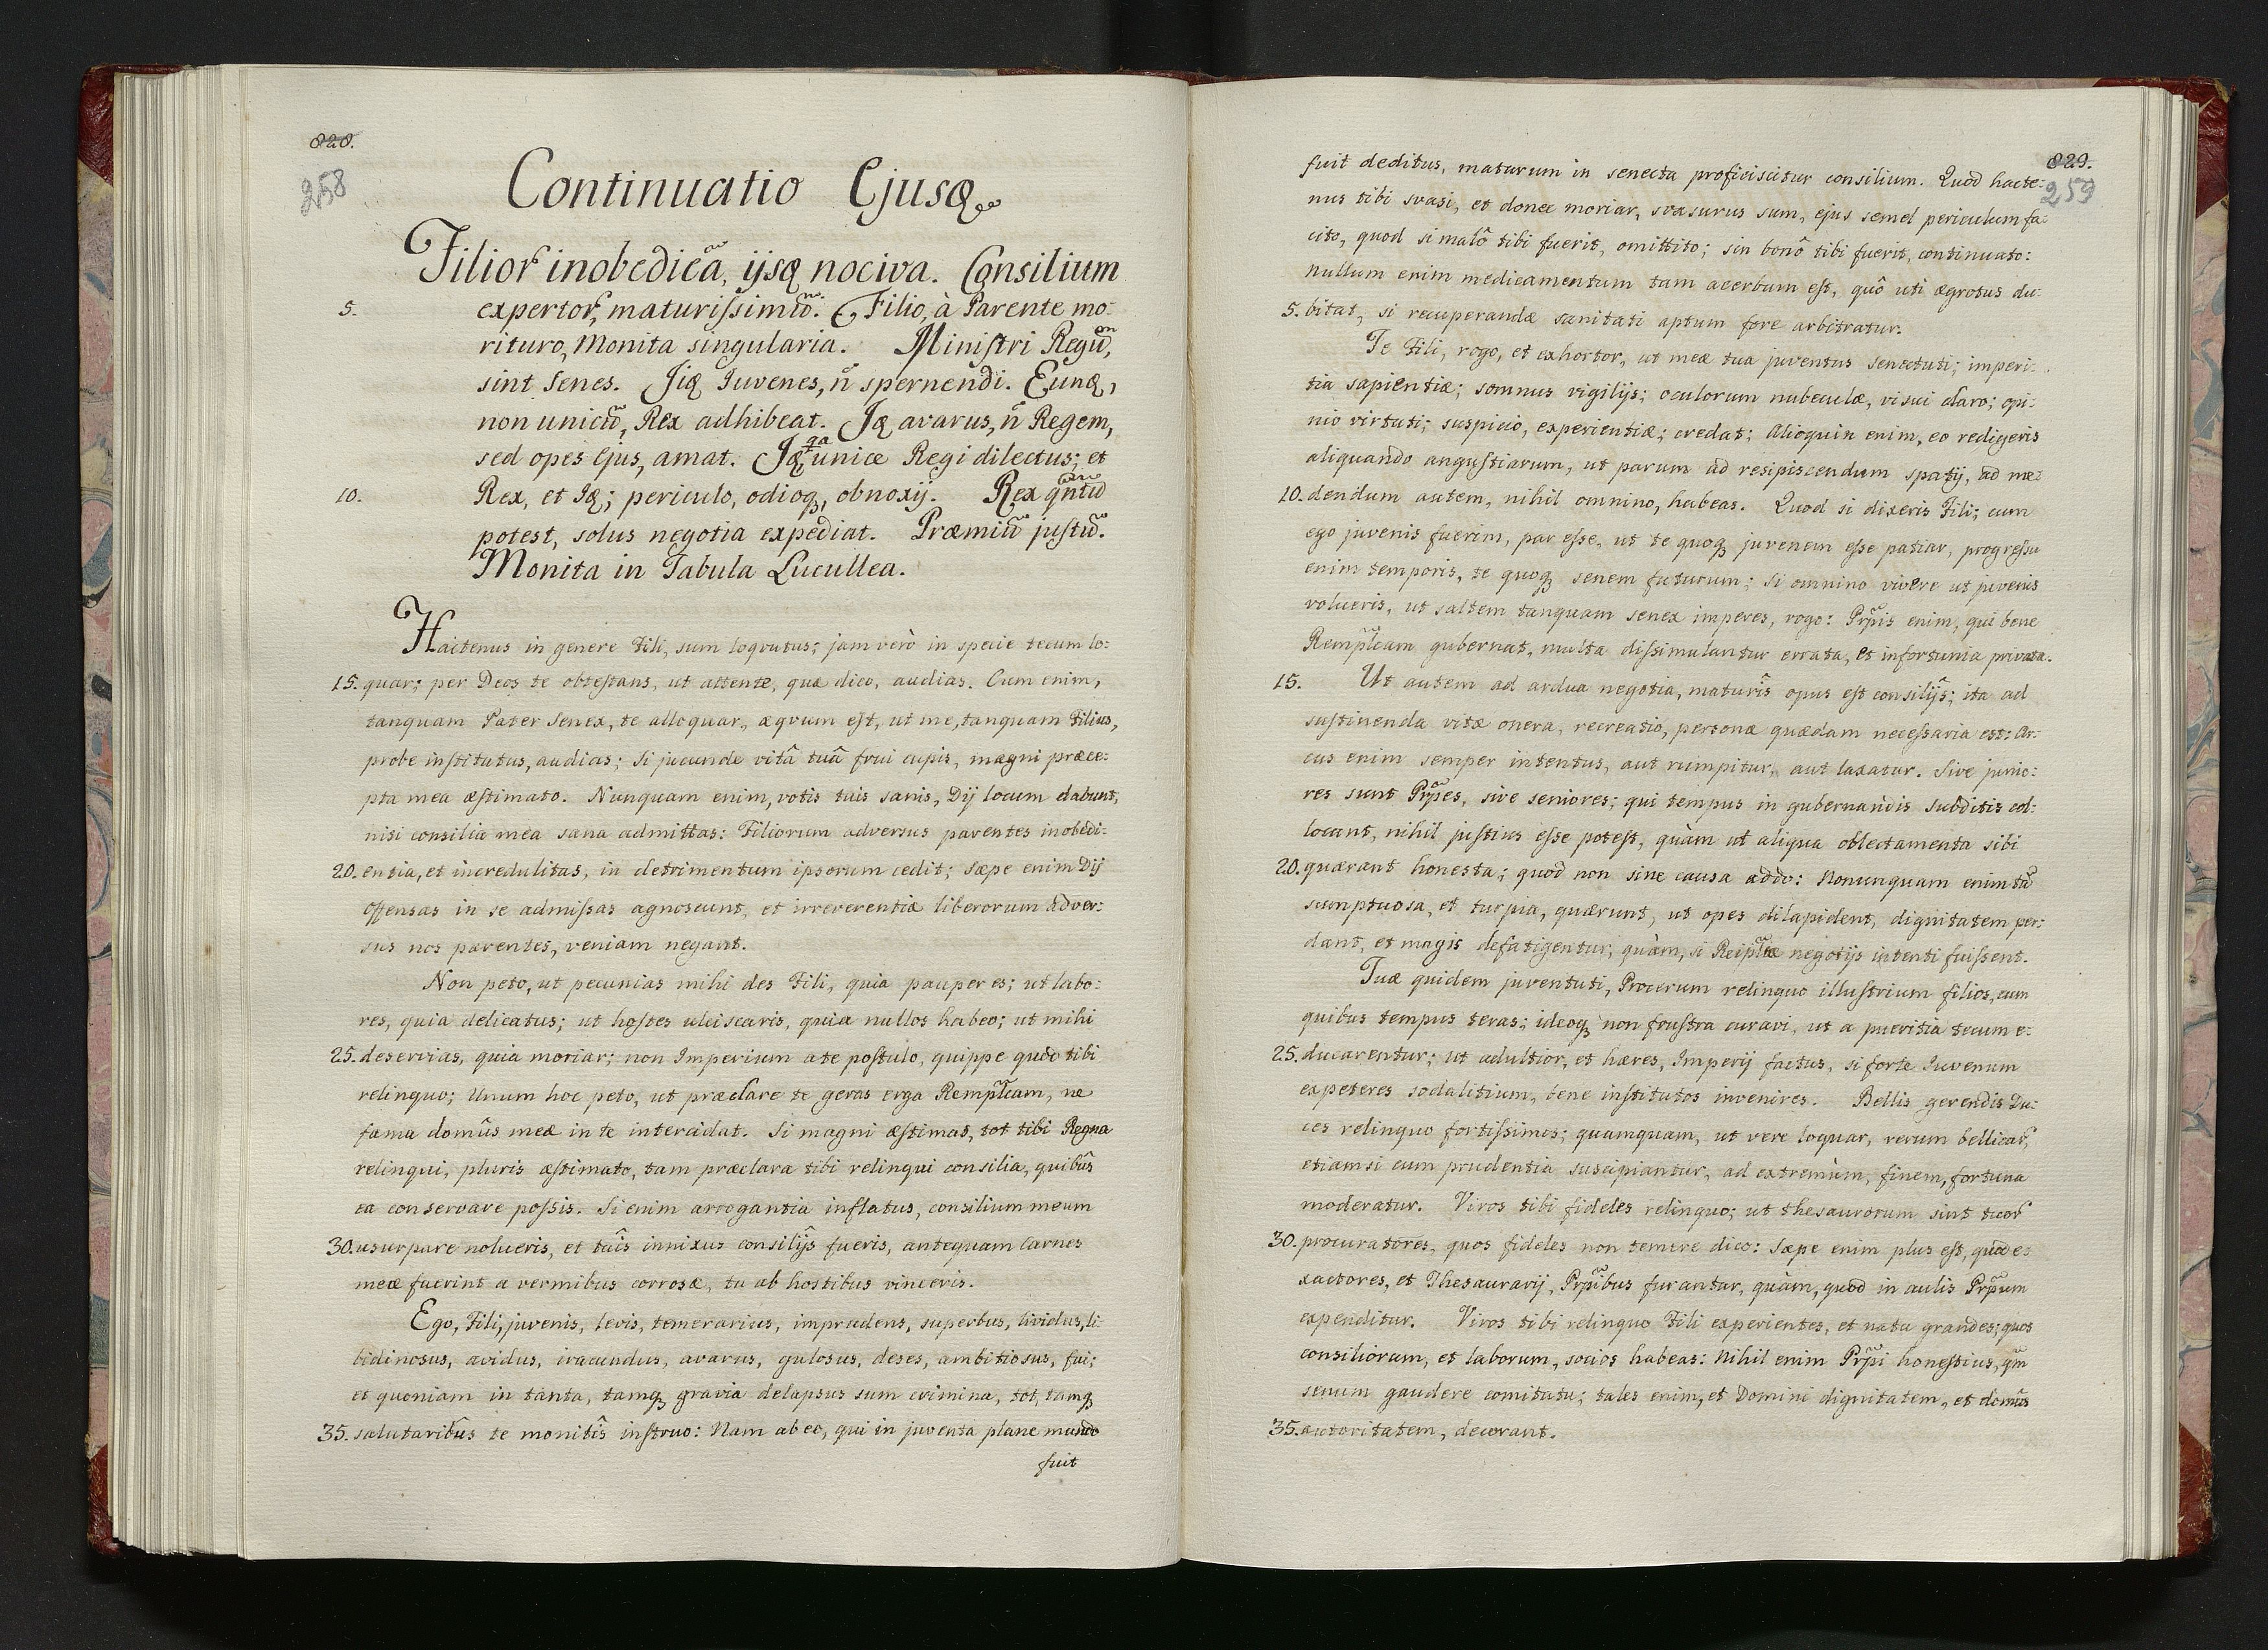 828.
258
Continuatio Ejusq
Filior inobedieã, ijsq nociva. Consilium
5. expertor, maturissimũ. Filio, à Parente mo:
rituro, Monita singularia. Ministri Regũ,
sint Senes. Jiq Juvenes, ñ spernendi. Eunq,
non unicũ, Rex adhibeat. Jq avarus, ñ Regem,
sed opes Ejus, amat. Jq unice Regi dilectus; et
10. Rex, et Jq; periculo, odioq, obnoxij. Rex qntũ
potest, solus negotia expediat. Præmiũ justũ.
Monita in Tabula Lucullea.
Hactenus in genere Fili, sum loqvutus; jam verò in specie tecum lo:
15. quar; per Deos te obtestans, ut attente, quæ dico, audias. Cum enim,
tanquam Pater Senex, te alloquar, æqvum est, ut me, tanquam Filius,
probe institutus, audias; Si jucunde vitâ tuâ frui cupis, magni præce:
pta mea æstimato. Nunquam enim, votis tuis sanis, Dij locum dabunt,
nisi consilia mea sana admittas: Filiorum adversus parentes inobedi:
20. entia, et incredulitas, in detrimentum ipsorum cedit; Sæpe enim Dij
Offensas in se admissas agnoscunt, et irreverentiæ liberorum adver:
sus nos parentes, veniam negant.
Non peto, ut pecunias mihi des Fili, quia pauper es; ut labo:
res, quia delicatus; ut hostes ulciscaris, quia nullos habeo; ut mihi
25. deservias, quia moriar; non Imperium a te postulo, quippe quod tibi
relinquo; Unum hoc peto, ut præclare te geras erga Remplcam, ne
fama domûs meæ in te intercidat. Si magni æstimas, tot tibi Regna
relinqui, pluris æstimato, tam præclara tibi relinqui consilia, quibûs
ea conservare possis. Si enim arrogantia inflatus, consilium meum
30. usurpare nolueris, et tuîs innixus consilijs fueris, antequam Carnes
meæ fuerint a vermibus corrosæ, tu ab hostibus vinceris.
Ego, Fili, juvenis, levis, temerarius, imprudens, superbus, lividus, li:
bidinosus, avidus, iracundus, avarus, gulosus, deses, ambitiosus, fui;
et quoniam in tanta, tamq gravia delapsus sum crimina, tot, tamq
35. salutaribûs te monitîs instruo: Nam ab eo, qui in juventa plane mundo
fuit
829.
259
fuit deditus, maturum in senecta proficiscitur consilium. Quod hacte:
nus tibi svasi, et donec moriar, svasurus sum, ejus semel periculum fa:
cito, quod si malô tibi fuerit, omittito; sin bonô tibi fuerit, continuato:
nullum enim medicamentum tam acerbum est, quô uti ægrotus du:
5. bitat, si recuperandæ sanitati aptum fore arbitratur.
Te Fili, rogo, et exhortor, ut meæ tua juventus senectuti; imperi:
tia sapientiæ; somnus vigilijs; oculorum nubeculæ, visui claro; opi:
nio virtuti; suspicio, experientiæ; credat; Alioquin enim, eo redigeris
aliquando angustiarum, ut parum ad resipiscendum spatij, ad me:
10. dendum autem, nihil omnino, habeas. Quod si dixeris Fili; cum
ego juvenis fuerim, par esse, ut te quoq juvenem esse patiar, progressu
enim temporis, te quoq senem futurum; Si omnino vivere ut juvenis
volueris, ut saltem tanquam senex imperes, rogo: Prpis enim, qui bene
Remplcam gubernat, multa dissimulantur errata, et infortunia privata.
15. Ut autem ad ardua negotia, maturîs opus est consilijs; ita ad
sustinenda vitæ onera, recreatio, personæ quædam necessaria est: Ar:
cus enim semper intentus, aut rumpitur, aut laxatur. Sive junio:
res sunt Prpes, sive seniores; qui tempus in gubernandis subditis col:
locant, nihil justius esse potest, quàm ut aliqua oblectamenta sibi
20. quærant honesta; quod non sine causa addo: Nonunquam enim tã
sumptuosa, et turpia, quærunt, ut opes dilapident, dignitatem per:
dant, et magis defatigentur, quàm, si Reiplcæ negotijs intenti fuissent.
Tuæ quidem juventuti, Procerum relinquo illustrium filios, cum
quibus tempus teras; ideoq non frustra curavi, ut a pueritia tecum e:
25. ducarentur; ut adultior, et hæres, Imperij factus, si forte Juvenum
expeteres sodalitium, bene institutos invenires. Bellis gerendis Du:
ces relinquo fortissimos; quamquam, ut vere loquar, rerum bellicar,
etiamsi cum prudentia suscipiantur, ad extremùm, finem, fortuna
moderatur. Viros tibi fideles relinquo; ut thesaurorum sint tuor
30. procuratores, quos fideles non temere dico: Sæpe enim plus est, quod e:
xactores, et Thesaurarij, Prpibus furantur, quàm, quod in aulis Prpum
expenditur. Viros tibi relinquo Fili experientes, et natu grandes; quos
consiliorum, et laborum, socios habeas: Nihil enim Prpi honestius, qm
senum gaudere comitatu; tales enim, et Domini dignitatem, et domûs
35. autoritatem, decorant.